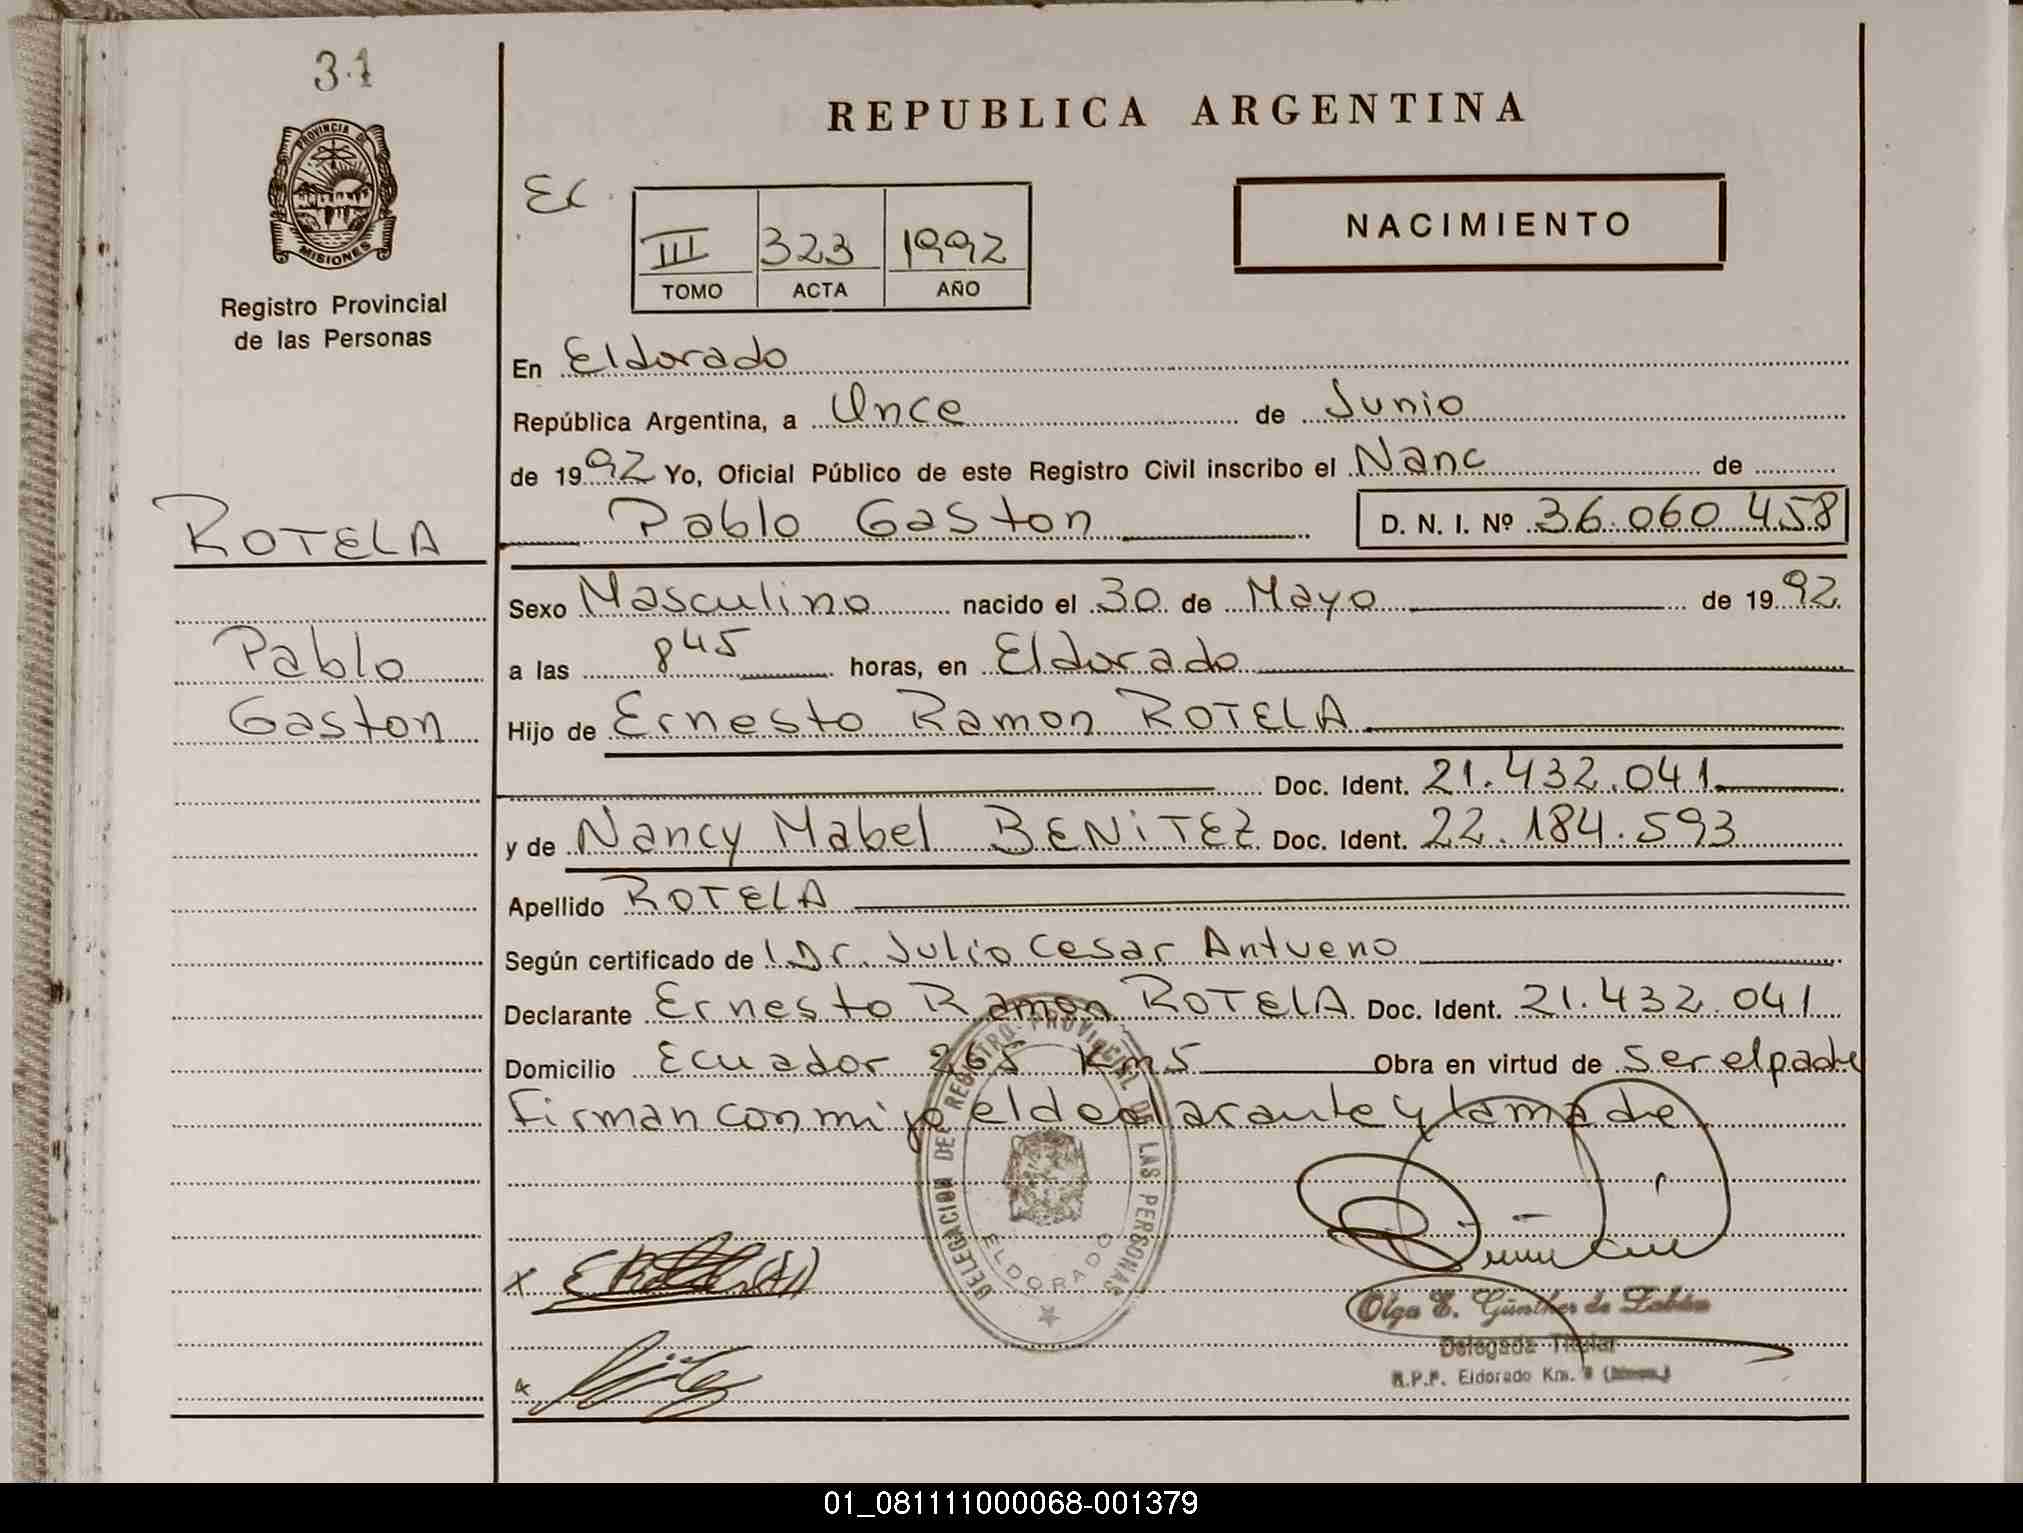 31
PROVINCIA DE
MISIONES
Registro Provincial
de las Personas
ROTELA
Pablo
Gaston
REPUBLICA ARGENTINA
EC.
III 323 1992
TOMO ACTA AÑO
NACIMIENTO
En Eldorado
República Argentina, a Once de Junio
de 1992 Yo, Oficial Público de este Registro Civil inscribo el Nanc de
Pablo Gaston D. N. I. Nº 36.060.458
Sexo Masculino nacido el 30 de Mayo de 1992
a las 8 45 horas, en Eldorado
Hijo de Ernesto Ramon ROTELA
Doc. Ident. 21.432.041
y de Nancy Mabel BENITEZ Doc. Ident. 22.184.593
Apellido ROTELA
Según certificado de l Dr. Julio Cesar Antueno
Declarante Ernesto Ramon ROTELA Doc. Ident. 21.432.041
Domicilio Ecuador 265 Km5 Obra en virtud de ser el padre
Firman con migo el declarante y la madre
DELEGACION DEL REGISTRO PROVINCIAL DE LAS PERSONAS
ELDORADO
x
Olga E. Günther de
Delegada Titular
R.P.P. Eldorado Km.
01_081111000068-001379